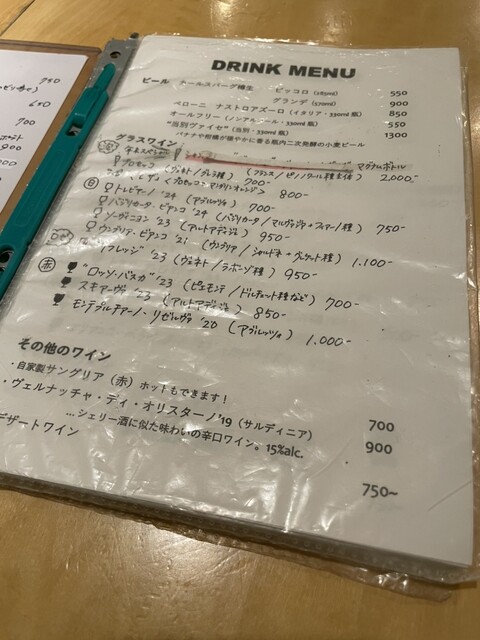 DRINK MENU
ビール カールスバーグ樽生 ピッコロ (285ml) 550
グランデ (570ml) 900
ペローニ ナストロアズーロ (イタリア・330ml 瓶) 850
オールフリー (ノンアルコール・330ml 瓶) 550
"当別ヴァイゼ" (当別・330ml 瓶) 1300
バナナや柑橘が穏やかに香る瓶内二次発酵の小麦ビール
グラスワイン
マグナムボトル
(フランス/ピノノワール種主体) 2,000,-
プロセッコ (ヴェネト/グレラ種) 700-
(プロセッコ+マンダリンオレンジ) 800-
白 トレビアーノ '24 (アブルッツォ) 700-
バジリカータ・ビアンコ '24 (バジリカータ/マルヴァジア+フィアーノ種) 750-
ソーヴィニヨン '23 (アルトアディジェ) 950-
ウンブリア・ビアンコ '21 (ウンブリア/シャルドネ+グレケット種) 1.100-
'23 (ヴェネト/ラボーゾ種) 950-
赤 "ロッソ・バスカ" '23 (ピエモンテ/ドルチェット種など) 700-
スキアーヴァ '23 (アルトアディジェ) 850-
モンテプルチアーノ・リゼルヴァ '20 (アブルッツォ) 1.000-
その他のワイン
・自家製サングリア (赤) ホットもできます! 700
・ヴェルナッチャ・ディ・オリスターノ'19 (サルディニア) 900
…シェリー酒に似た味わいの辛口ワイン。15%alc.
デザートワイン 750~
750
650
700
900